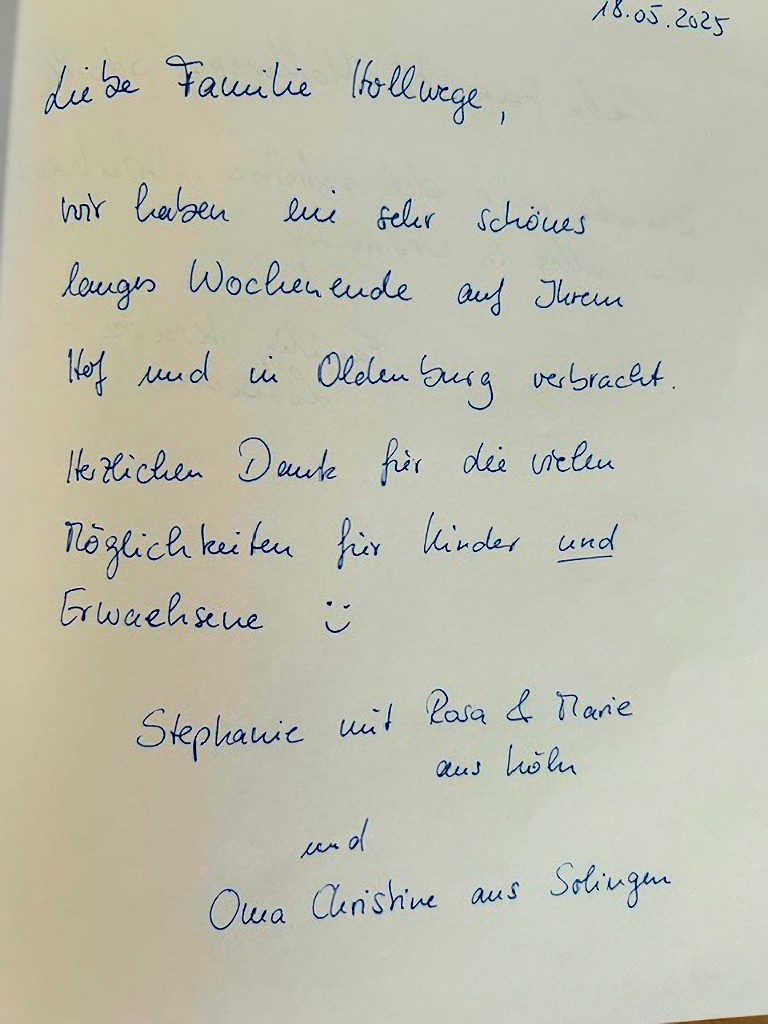 18.05.2025
Liebe Familie Hollwege,
wir haben ein sehr schönes
langes Wochenende auf Ihrem
Hof und in Oldenburg verbracht.
Herzlichen Dank für die vielen
Möglichkeiten für Kinder und
Erwachsene :)
Stephanie mit Rosa & Marie
aus Köln
und
Oma Christine aus Solingen